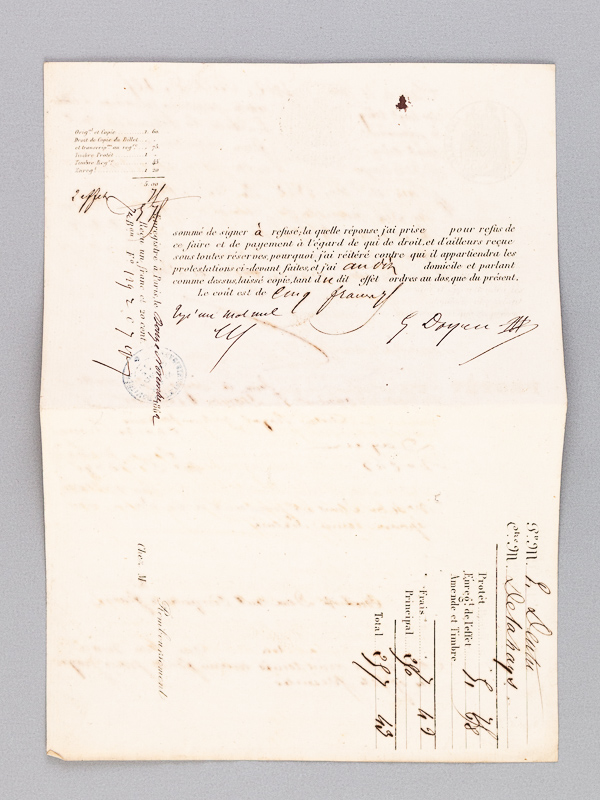 Orig.al et Copie 1 60
Droit de Copie du Billet
et transcrip.on au reg.re 75
Timbre Protêt 1
Timbre Reg.re 45
Enreg.t 1 20
5.00
2 effets
sommé de signer à refusé; la quelle réponse j'ai prise pour refus de
ce faire et de payement à l'égard de qui de droit, et d'ailleurs reçue
sous toutes réserves, pourquoi j'ai réitéré contre qui il appartiendra les
protestations ci-devant faites, et j'ai au dit domicile et parlant
comme dessus, laissé copie, tant du dit effet ordres au dos, que du présent.
Le coût est de cinq francs
Rayé un mot nul
G Doyen
Enregistré à Paris le onze Novembre 186
Reçu un franc et 20 cent
Chez M
Remboursement
P.r M. E. Dentu
C.tre M. Delahays
Protêt
Enreg.t de l'effet
Amende et Timbre
Frais 7 43
Principal 250
Total 257 43